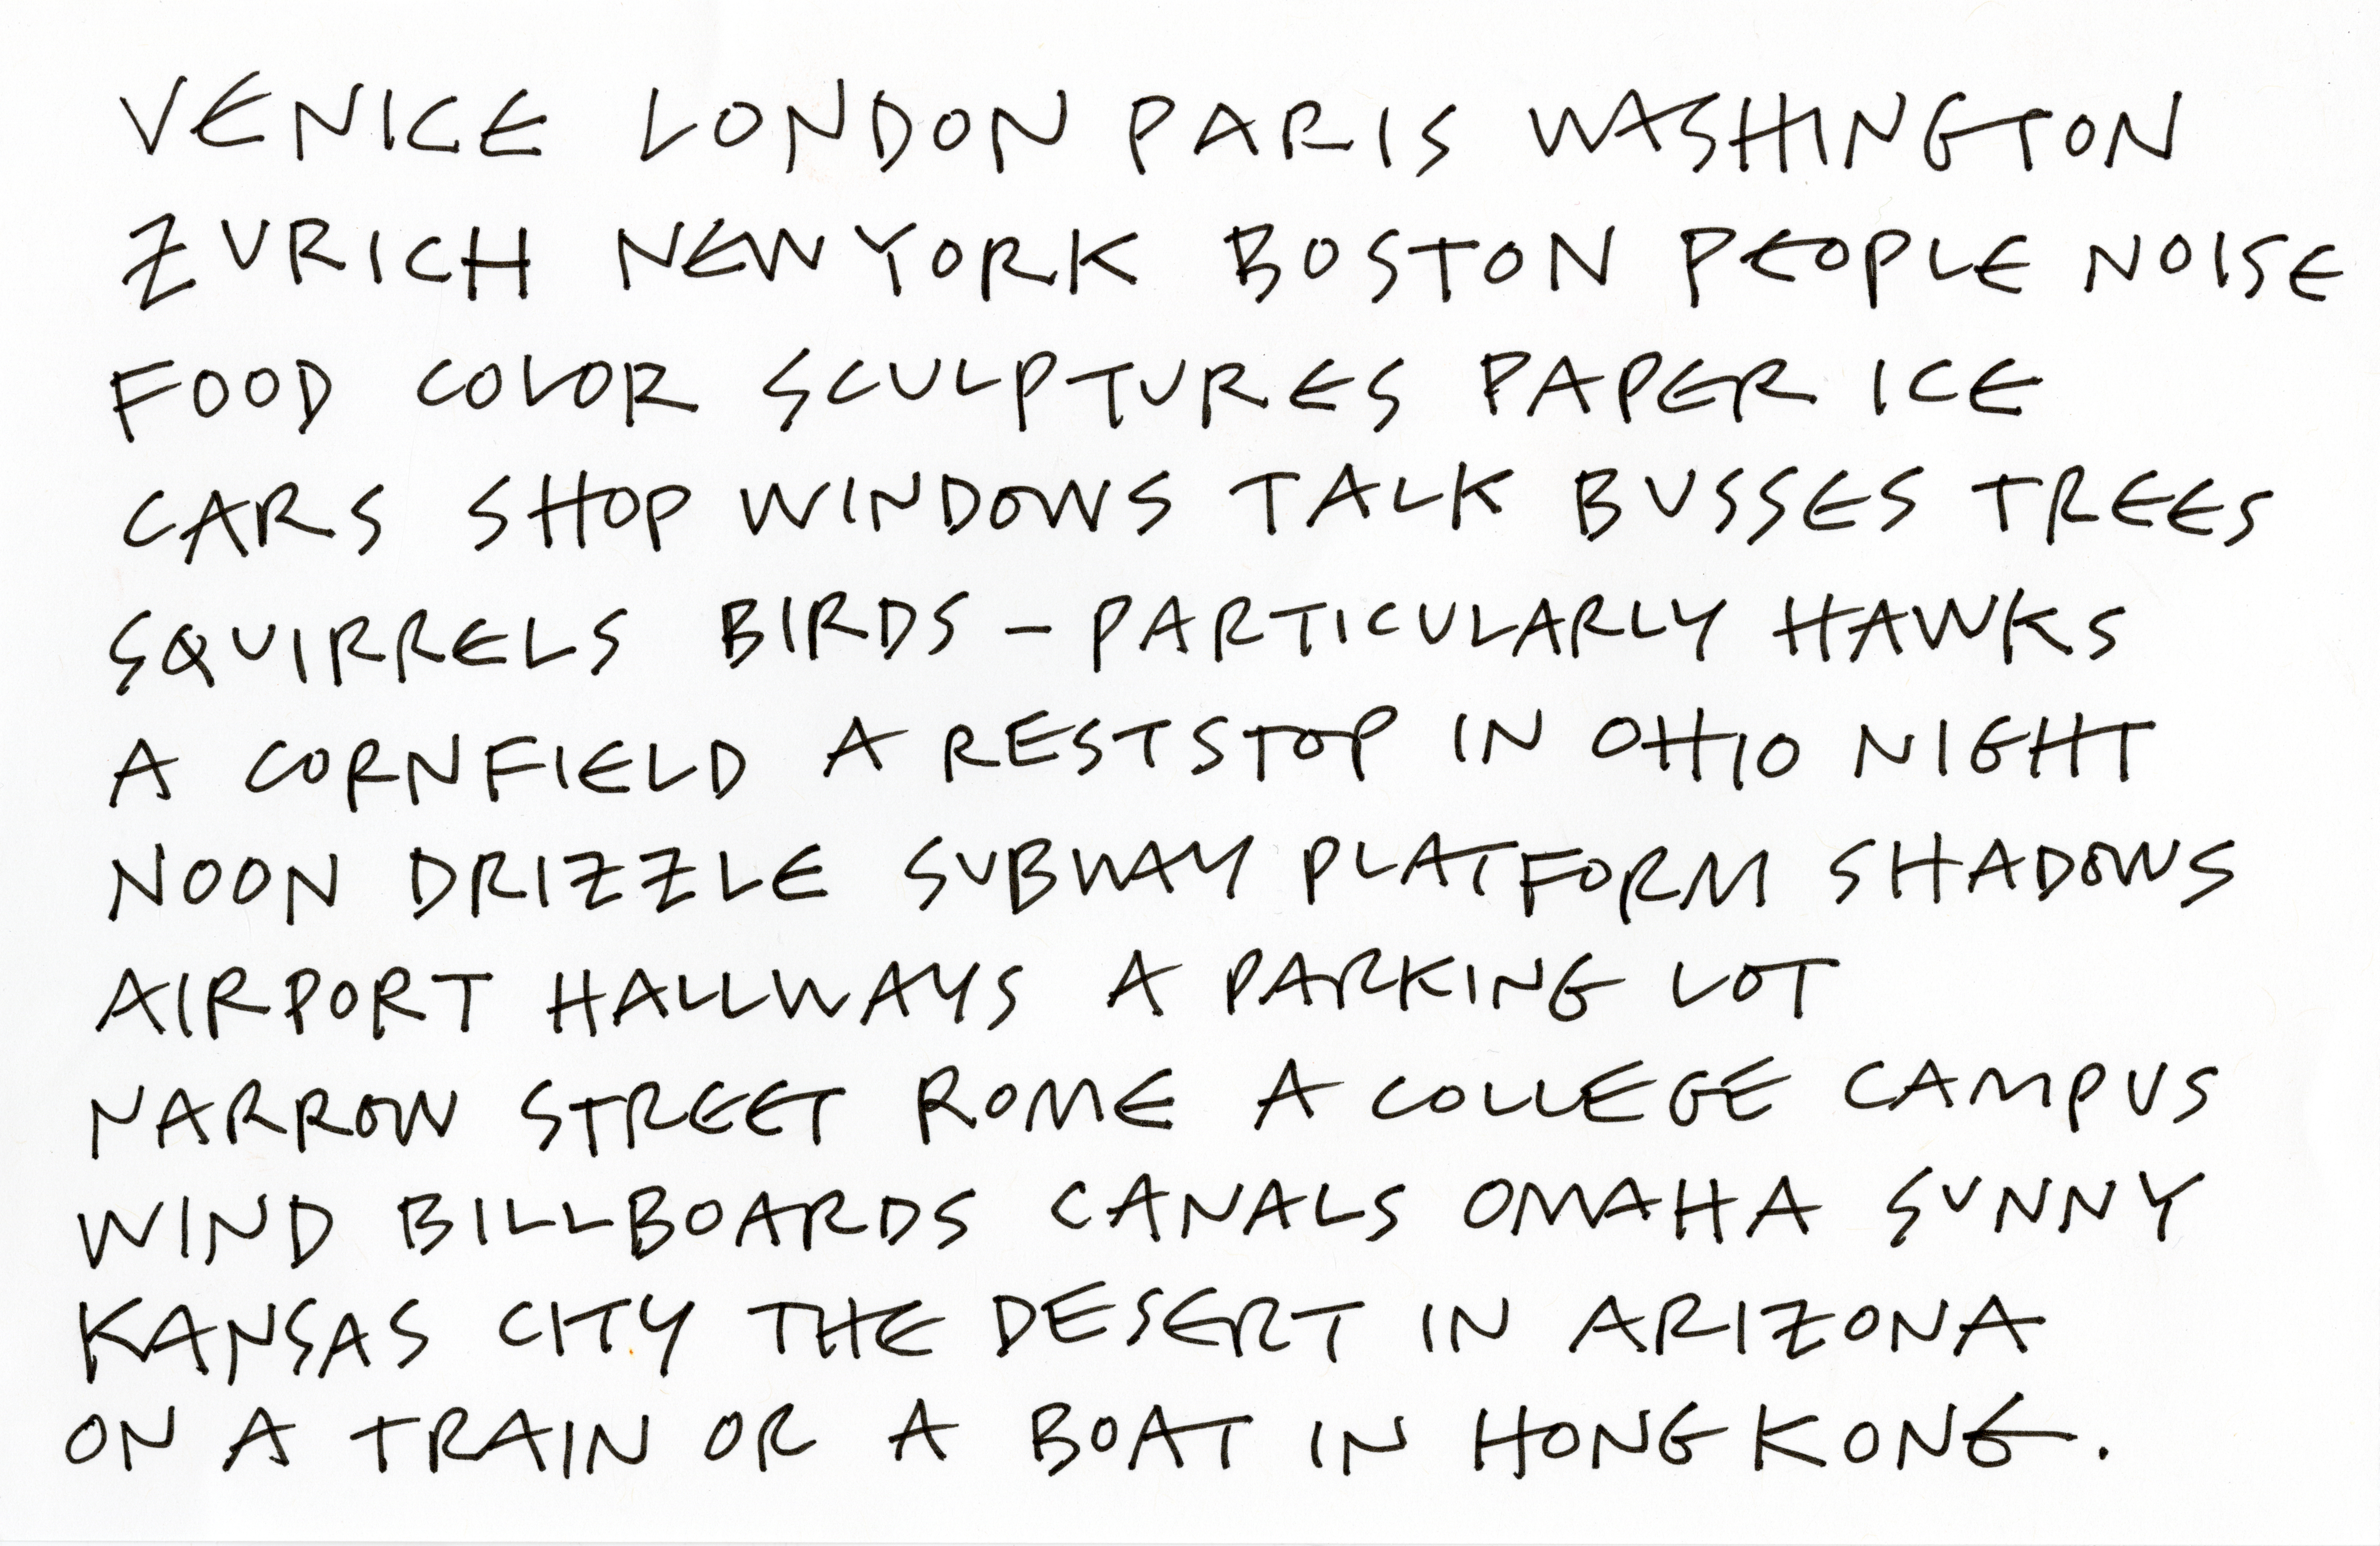 VENICE LONDON PARIS WASHINGTON
ZURICH NEW YORK BOSTON PEOPLE NOISE
FOOD COLOR SCULPTURES PAPER ICE
CARS SHOP WINDOWS TALK BUSSES TREES
SQUIRRELS BIRDS – PARTICULARLY HAWKS
A CORNFIELD A REST STOP IN OHIO NIGHT
NOON DRIZZLE SUBWAY PLATFORM SHADOWS
AIRPORT HALLWAYS A PARKING LOT
NARROW STREET ROME A COLLEGE CAMPUS
WIND BILLBOARDS CANALS OMAHA SUNNY
KANSAS CITY THE DESERT IN ARIZONA
ON A TRAIN OR A BOAT IN HONG KONG.